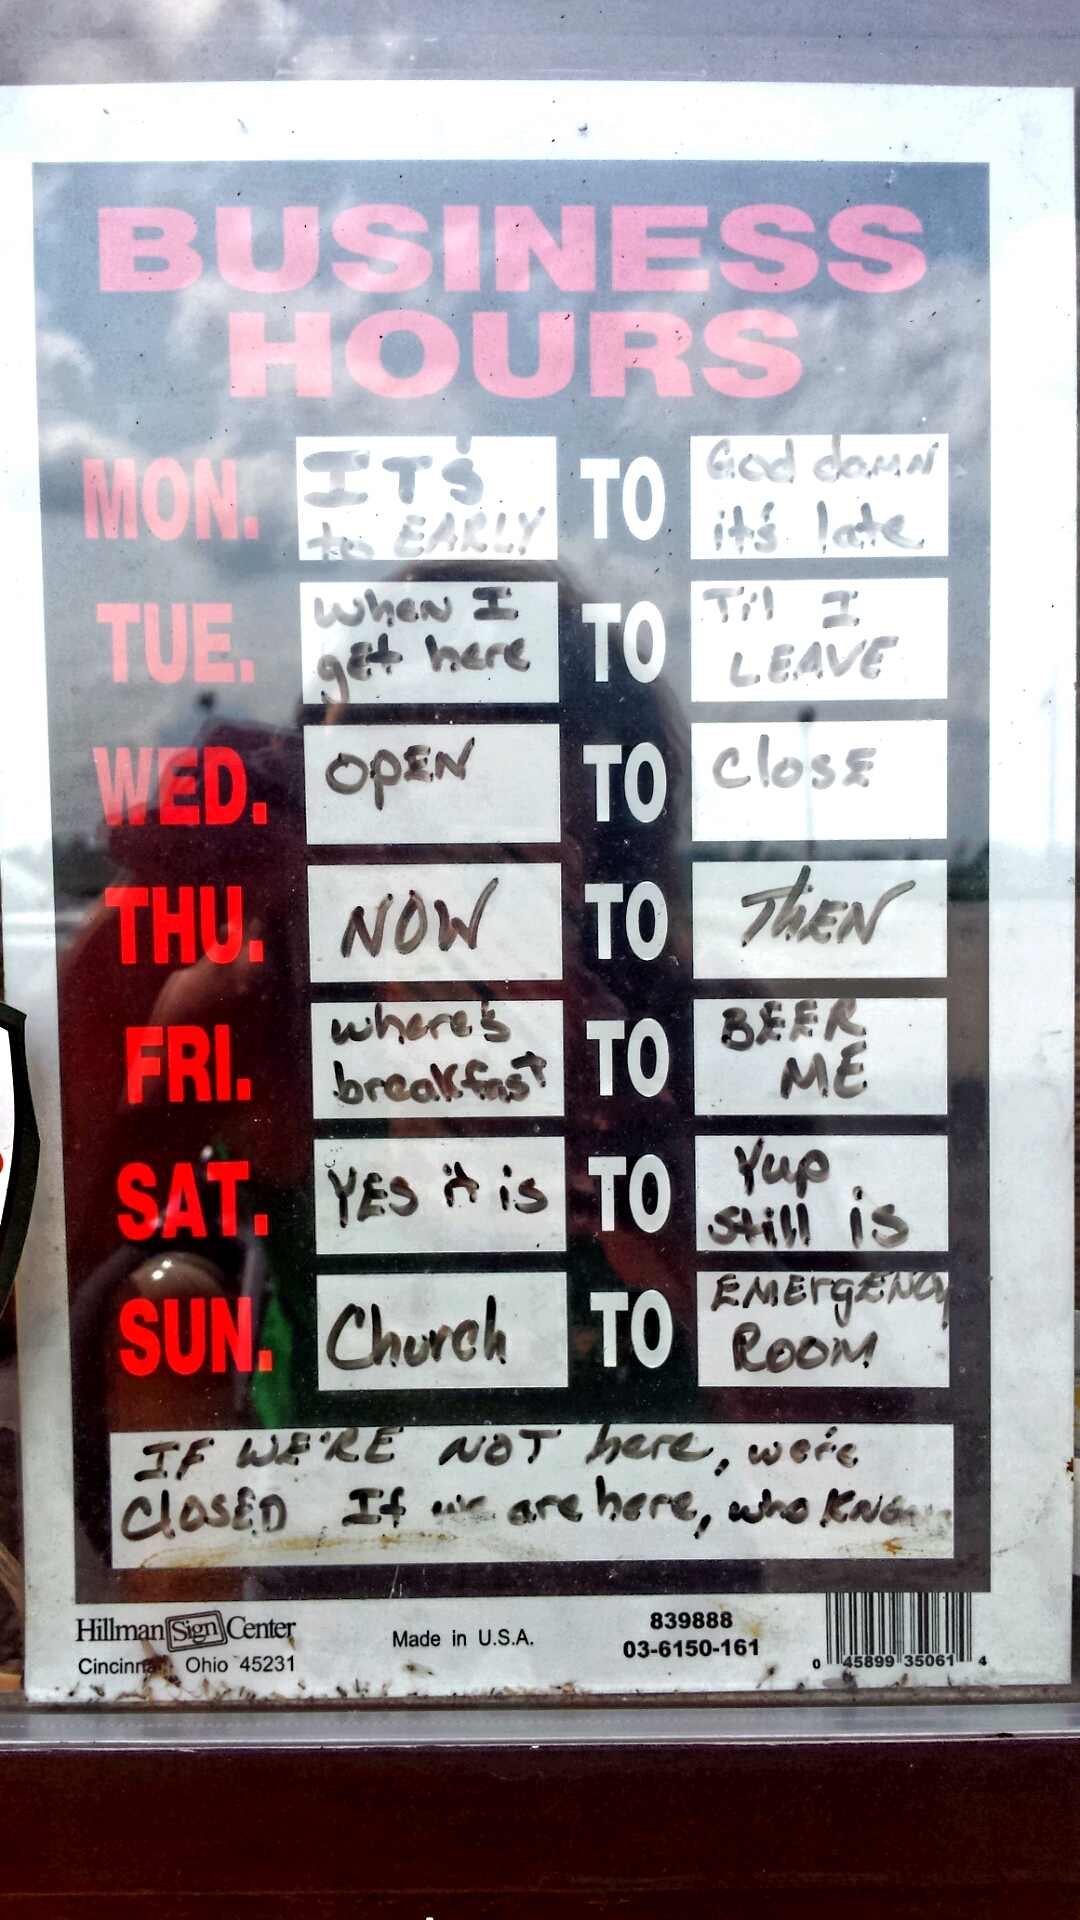 BUSINESS
HOURS
MON. IT'S to EARLY TO God damn it's late
TUE. When I get here TO Til I LEAVE
WED. OPEN TO Close
THU. NOW TO THEN
FRI. where's breakfast TO BEER ME
SAT. YES it is TO Yup still is
SUN. Church TO EMERgENCY ROOM
IF WE'RE NOT here, we're
ClOSED If we are here, who
Hillman Sign Center
Cincinnati, Ohio 45231
Made in U.S.A.
839888
03-6150-161
0 45899 35061 4